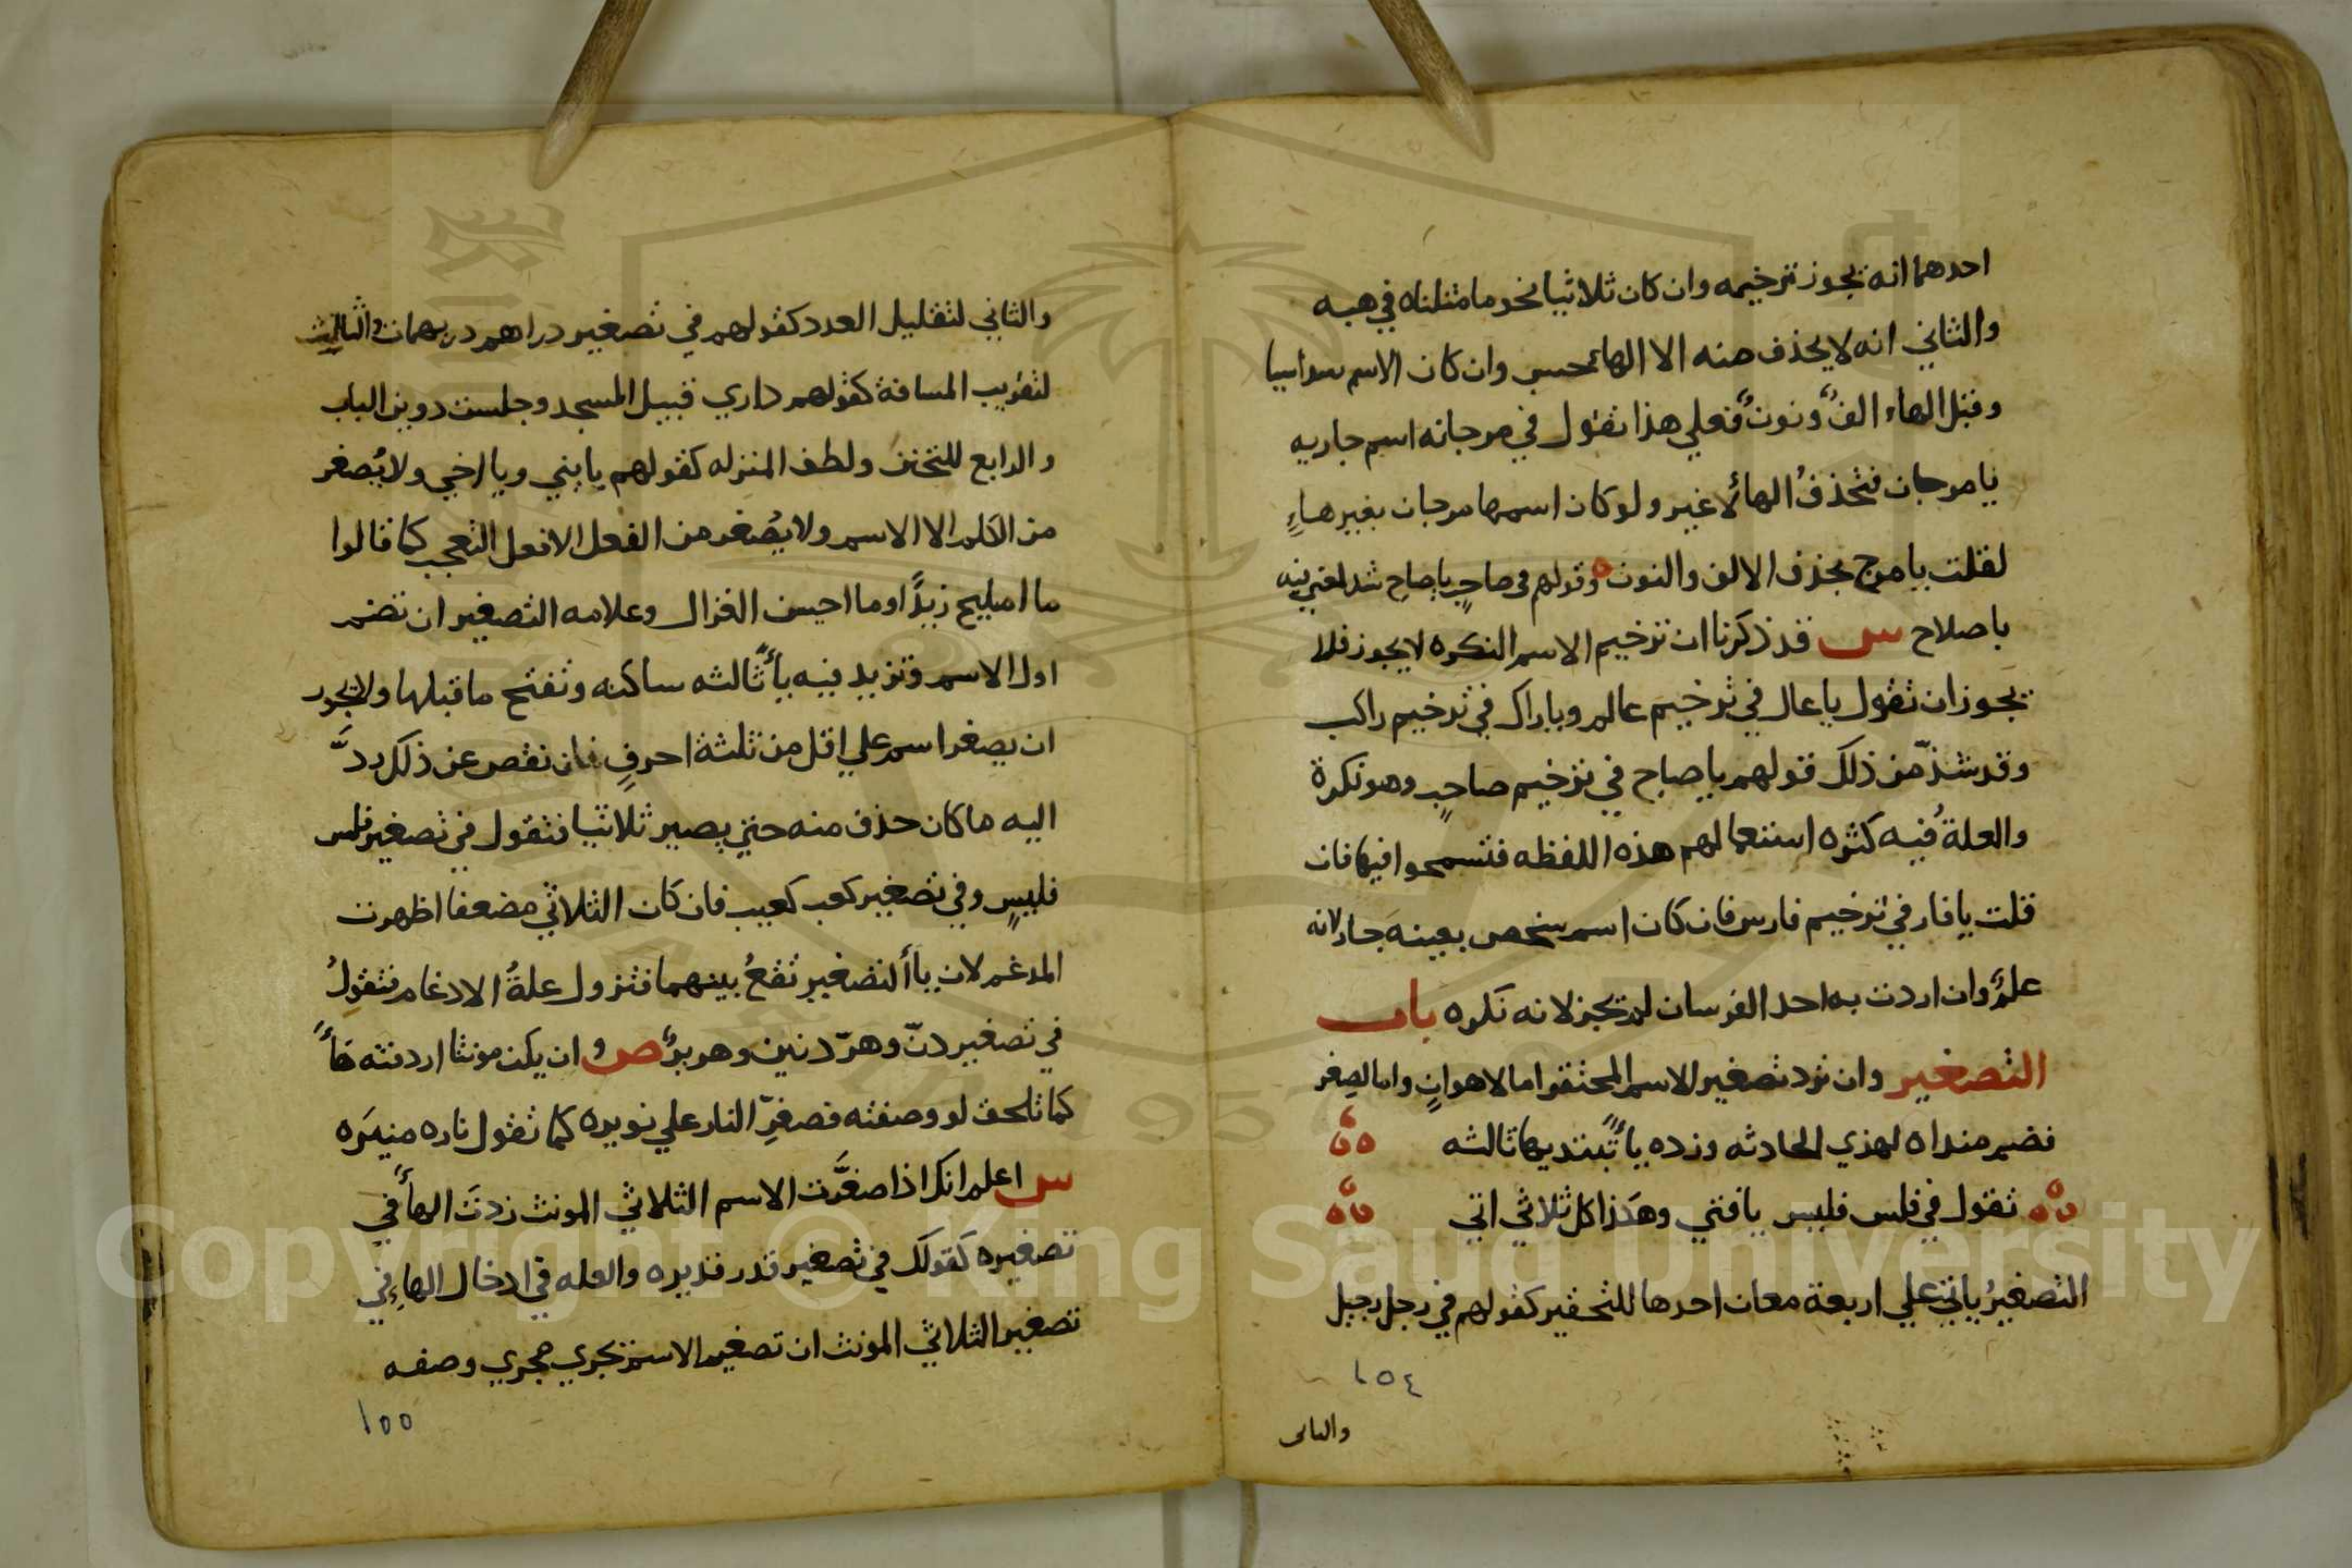 احدهما انه يجوز ترخيمه وان كان ثلاثيا نحو ما مثلناه في هبه
والثاني انه لا يحذف منه الا الهاء حسب وان كان الاسم سداسيا
وقبل الهاء الفٌ ونونٌ فعلي هذا تقول في مرجانه اسم جاريه
يا مرجان فتحذفُ الهأ لا غير ولو كان اسمها مرجان بغير هاءٍ
لقلت يا مرج بحذف الالف والنون وقولهم في صاحبٍ يا صاح شذ لمعني فيه
باصلاح س قد ذكرنا ان ترخيم الاسم النكره لا يجوز فلا
يجوز ان تقول يا عال في ترخيم عالم ويا راك في ترخيم راكب
وقد شذّ من ذلك قولهم يا صاح في ترخيم صاحبٍ وهو نكرة
والعلةُ فيه كثره استعمالهم هذه اللفظه فتسمحوا فيها فان
قلت يا فار في ترخيم فارس فان كان اسم شخص بعينه جاز لانه
علمٌ وان اردت به احد الفرسان لم يجز لانه نكره باب
التصغير وان ترد تصغير الاسم المحتقر اما لاهوانٍ واما لصغر
فضم مبداه لهذي الحادثه وزده يأً تبتديها ثالثه
تقول في فلس فليس يا فتي وهكذا كل ثلاثي اتي
التصغيرُ ياتي علي اربعة معان احدها للتحقير كقولهم في رجل رجيل
١٥٤
والثانى
والثاني لتقليل العدد كقولهم في تصغير دراهم دريهمات والثالث
لتقريب المسافة كقولهم داري قبيل المسجد وجلست دوين الباب
والرابع للتحنن ولطف المنزله كقولهم يا بني ويا اخي ولا يُصغر
من الكلم الا الاسم ولا يُصغر من الفعل الا فعل التعجب كما قالوا
ما اميلح زيدًا وما احيسن الغزال وعلامه التصغير ان تضم
اول الاسم وتزيد فيه يأً ثالثه ساكنه وتفتح ما قبلها ولا يجوز
ان يصغر اسم علي اقل من ثلثة احرفٍ فان نقص عن ذلك ردَّ
اليه ما كان حذف منه حتي يصير ثلاثيا فتقول في تصغير فلس
فليسٍ وفي تصغير كعب كعيب فان كان الثلاثي مضعفا اظهرت
المدغم لان يأ التصغير تقعُ بينهما فتزول علةُ الادغام فتقولُ
في تصغير دنّ وهرّ دنين وهريرٌ ص وان يكن مونثا اردفته هأً
كما تلحق لو وصفته فصغرّ النار علي نويره كما تقول ناره منيره
س اعلم انك اذا صغّرت الاسم الثلاثي المونث زدتَ الهأَ في
تصغيره كقولك في تصغير قدر قديره والعله في ادخال الهاءِ في
تصغير الثلاثي المونث ان تصغير الاسم يجري مجري وصفه
١٥٥
Copyright © King Saud University
1957